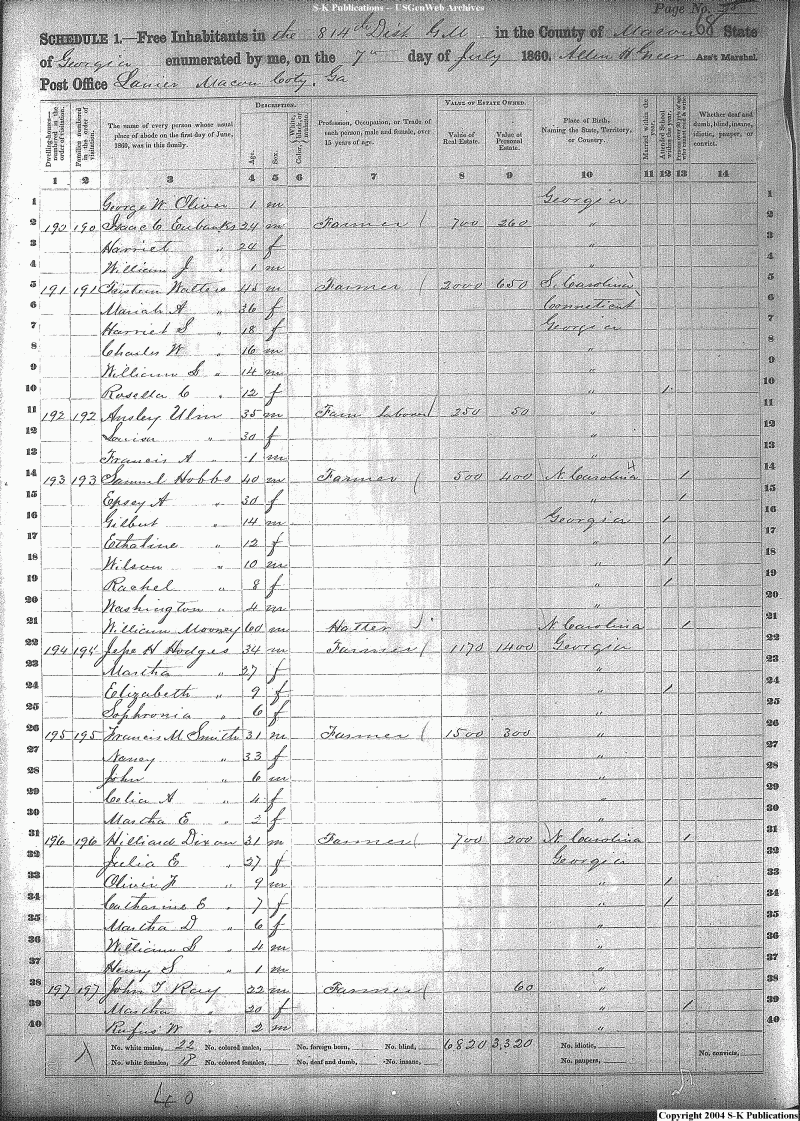 S-K Publications – USGenWeb Archives
Page No. 68
SCHEDULE 1.—Free Inhabitants in the 814th Dist G.M in the County of Macon State
of Georgia enumerated by me, on the 7th day of July 1860. Allen H Greer Ass't Marshal.
Post Office Lanier Macon Coty. Ga
Dwelling-houses—numbered in the order of visitation. Families numbered in the order of visitation. The name of every person whose usual place of abode on the first day of June, 1860, was in this family. DESCRIPTION. Age. Sex. Color, White, black, or mulatto. Profession, Occupation, or Trade of each person, male and female, over 15 years of age. VALUE OF ESTATE OWNED. Value of Real Estate. Value of Personal Estate. Place of Birth, Naming the State, Territory, or Country. Married within the year. Attended School within the year. Whether deaf and dumb, blind, insane, idiotic, pauper, or convict.
1 2 3 4 5 6 7 8 9 10 11 12 13 14
1 George W Oliver 1 m Georgia 1
2 190 190 Isaac C Eubanks 24 m Farmer 700 260 " 2
3 Harriet " 24 f " 3
4 William J " 1 m " 4
5 191 191 Watters 45 m Farmer 2000 650 S. Carolina 5
6 Mariah A " 36 f Connecticut 6
7 Harriet S " 18 f Georgia 7
8 Charles W " 16 m " 8
9 William S " 14 m " 9
10 Rosella C " 12 f " 1 10
11 192 192 Ansley Ulm 35 m Farm Laborer 250 50 " 11
12 Louisa " 30 f " 12
13 Francis A " 1 m " 13
14 193 193 Samuel Hobbs 40 m Farmer 500 400 N. Carolina 4 1 14
15 Epsey A " 30 f " 1 15
16 Gilbert " 14 m Georgia 1 16
17 Ethaline " 12 f " 1 17
18 Wilson " 10 m " 1 18
19 Rachel " 8 f " 1 19
20 Washington " 4 m " 20
21 William Mooney 60 m Hatter N. Carolina 1 21
22 194 194 Jesse H Hodges 34 m Farmer 1170 1400 Georgia 22
23 Martha " 27 f " 23
24 Elizabeth " 9 f " 1 24
25 Sophronia " 6 f " 25
26 195 195 Francis M Smith 31 m Farmer 1500 300 " 26
27 Nancy " 33 f " 27
28 John " 6 m " 28
29 Celia A " 4 f " 29
30 Martha E " 2 f " 30
31 196 196 Hilliard Dixon 31 m Farmer 700 200 N. Carolina 1 31
32 Julia E " 27 f Georgia 32
33 Oliver F " 9 m " 1 33
34 Catharine E " 7 f " 1 34
35 Martha D " 6 f " 35
36 William S " 4 m " 36
37 Henry S " 1 m " 37
38 197 197 John T Ray 22 m Farmer 60 " 38
39 Martha " 20 f " 1 39
40 Rufus W " 2 m " 40
No. white males, 22 No. colored males, No. foreign born, No. blind, 6820 3,320 No. idiotic, No. convicts,
No. white females, 18 No. colored females, No. deaf and dumb, No. insane, No. paupers,
40
Copyright 2004 S-K Publications